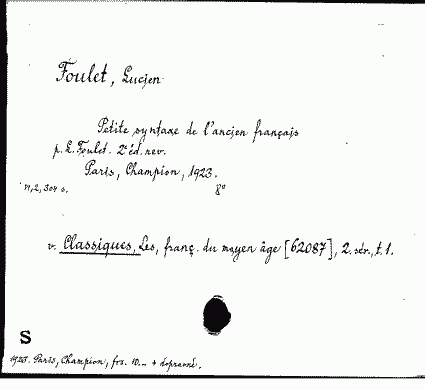 Foulet, Lucien
Petite syntaxe de l'ancien français
p. L. Foulet. 2e éd. rev.
Paris, Champion, 1923.
VI, 2, 304 s. 8º
v. Classiques, Les, franç. du moyen âge [62087], 2. sér., t. 1.
S
1923. Paris, Champion, frs. 10.– + dopravné.